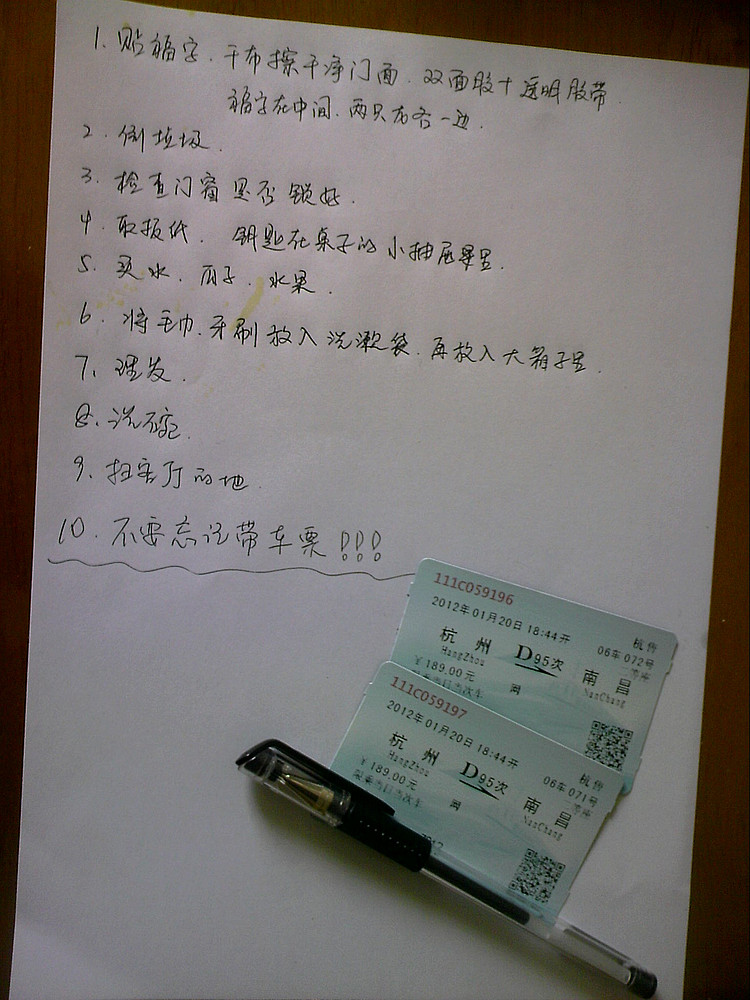 1. 贴福字. 干布擦干净门面. 双面胶+透明胶带.
福字在中间. 两只各一边.
2. 倒垃圾.
3. 检查门窗是否锁好.
4. 取报纸. 钥匙在桌子的小抽屉里.
5. 买水. 瓜子. 水果.
6. 将毛巾. 牙刷放入洗漱袋. 再放入大箱子里.
7. 理发.
8. 洗碗.
9. 扫客厅的地.
10. 不要忘记带车票!!!
111C059196
杭售
2012年01月20日18:44开
06车072号
杭州
D95次
南昌
HangZhou
NanChang
二等座
¥189.00元
网
111C059197
杭售
2012年01月20日18:44开
06车071号
杭州
D95次
南昌
HangZhou
NanChang
二等座
¥189.00元
网
限乘当日当次车